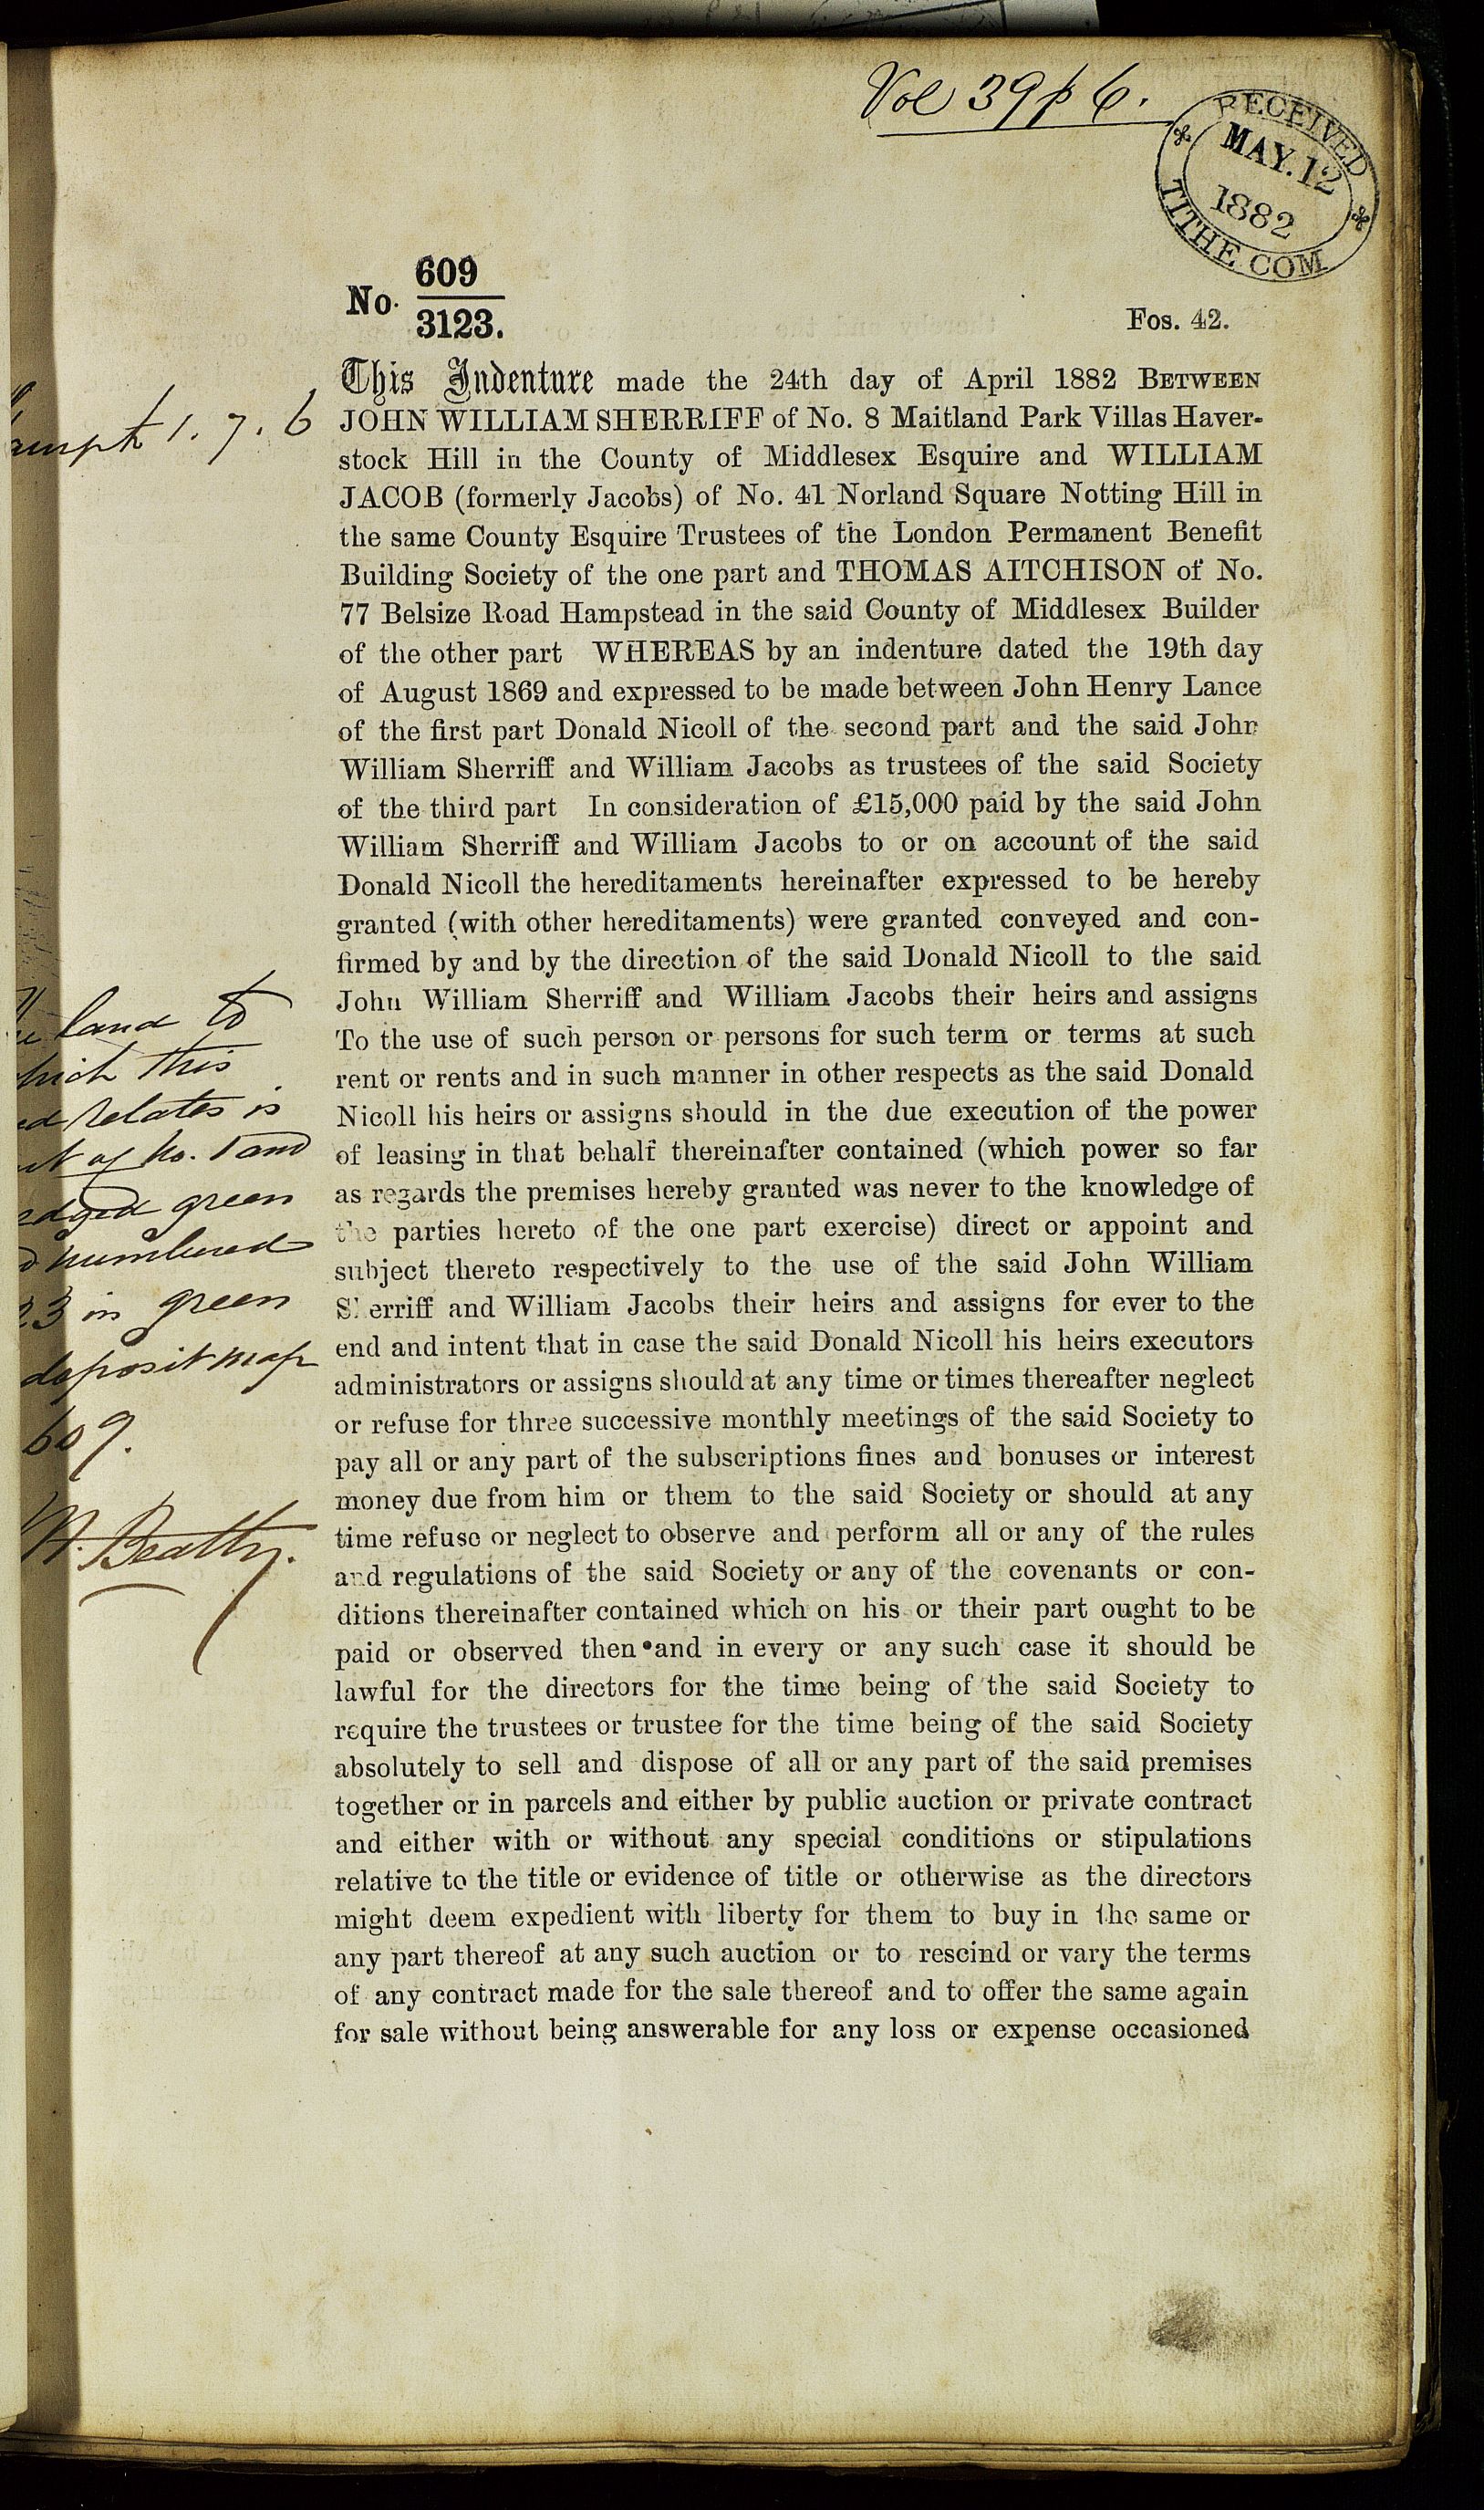 Vol 39 p 6.
RECEIVED
MAY. 12
1882
TITHE COM
609
No.
3123.
Fos. 42.
This Indenture made the 24th day of April 1882 BETWEEN
JOHN WILLIAM SHERRIFF of No. 8 Maitland Park Villas Haver-
stock Hill in the County of Middlesex Esquire and WILLIAM
JACOB (formerly Jacobs) of No. 41 Norland Square Notting Hill in
the same County Esquire Trustees of the London Permanent Benefit
Building Society of the one part and THOMAS AITCHISON of No.
77 Belsize Road Hampstead in the said County of Middlesex Builder
of the other part WHEREAS by an indenture dated the 19th day
of August 1869 and expressed to be made between John Henry Lance
of the first part Donald Nicoll of the second part and the said John
William Sherriff and William Jacobs as trustees of the said Society
of the third part In consideration of £15,000 paid by the said John
William Sherriff and William Jacobs to or on account of the said
Donald Nicoll the hereditaments hereinafter expressed to be hereby
granted (with other hereditaments) were granted conveyed and con-
firmed by and by the direction of the said Donald Nicoll to the said
John William Sherriff and William Jacobs their heirs and assigns
To the use of such person or persons for such term or terms at such
rent or rents and in such manner in other respects as the said Donald
Nicoll his heirs or assigns should in the due execution of the power
of leasing in that behalf thereinafter contained (which power so far
as regards the premises hereby granted was never to the knowledge of
the parties hereto of the one part exercise) direct or appoint and
subject thereto respectively to the use of the said John William
Sherriff and William Jacobs their heirs and assigns for ever to the
end and intent that in case the said Donald Nicoll his heirs executors
administrators or assigns should at any time or times thereafter neglect
or refuse for three successive monthly meetings of the said Society to
pay all or any part of the subscriptions fines and bonuses or interest
money due from him or them to the said Society or should at any
time refuse or neglect to observe and perform all or any of the rules
and regulations of the said Society or any of the covenants or con-
ditions thereinafter contained which on his or their part ought to be
paid or observed then and in every or any such case it should be
lawful for the directors for the time being of the said Society to
require the trustees or trustee for the time being of the said Society
absolutely to sell and dispose of all or any part of the said premises
together or in parcels and either by public auction or private contract
and either with or without any special conditions or stipulations
relative to the title or evidence of title or otherwise as the directors
might deem expedient with liberty for them to buy in the same or
any part thereof at any such auction or to rescind or vary the terms
of any contract made for the sale thereof and to offer the same again
for sale without being answerable for any loss or expense occasioned
1. 7. 6
land to
this
relates is
of No. 1 and
green
numbered
23 in green
deposit map
609.
Beatty.